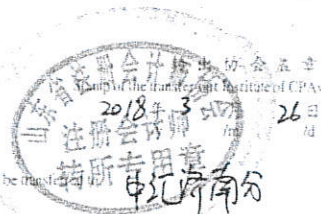 转出协会盖章
Stamp of the transfer-out Institute of CPAs
2018年3月26日
/m /d
山东省注册会计师协会
注册会计师
转所专用章
be transferred to 中汇济南分